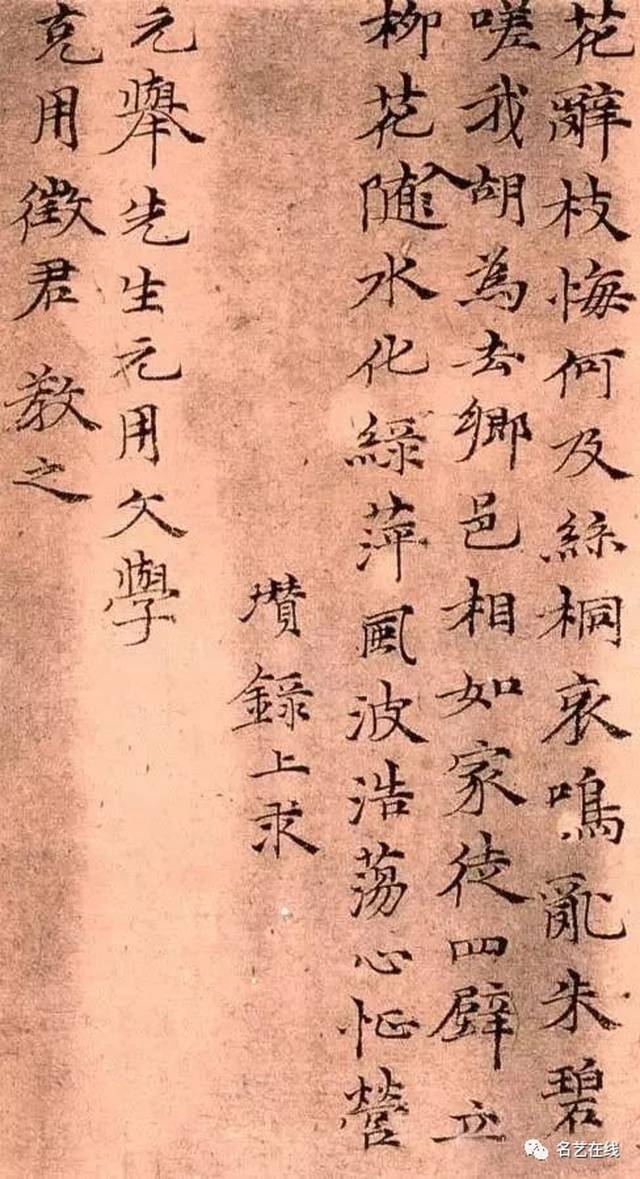 花辭枝悔何及絲桐哀鳴亂朱碧
嗟我胡為去鄉邑相如家徒四壁立
柳花隨入水化綠萍風波浩蕩心怔營
瓚錄上求
元舉先生元用文學
克用徵君 教之
名艺在线